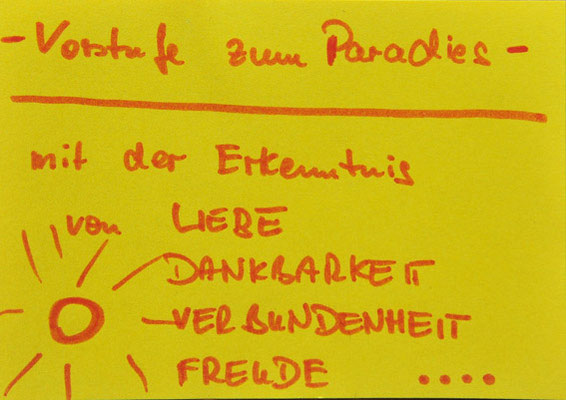 - Vorstufe zum Paradies -
mit der Erkenntnis
von LIEBE
DANKBARKEIT
VERBUNDENHEIT
FREUDE ....